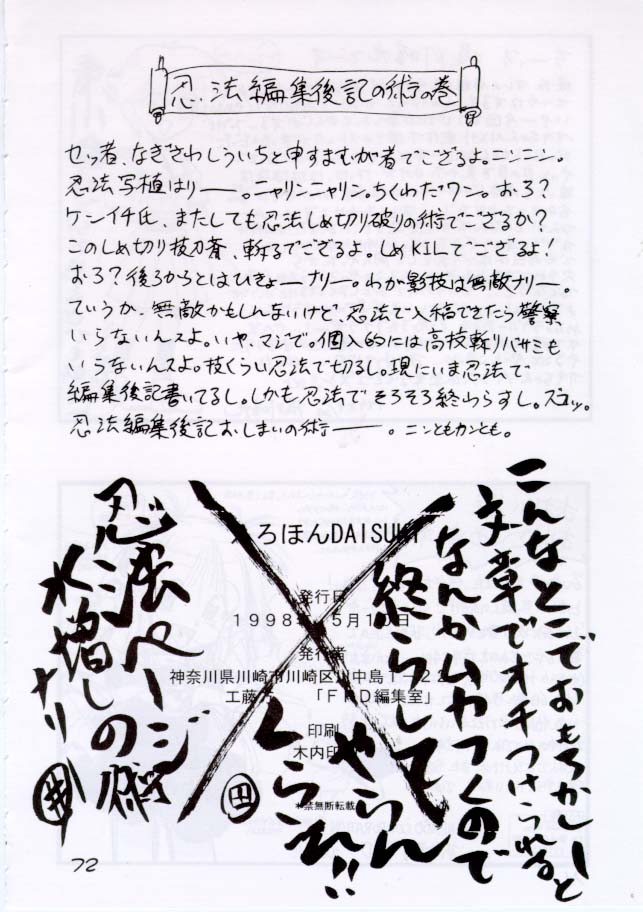 忍法編集後記の術の巻
せっ者、なぎさわしういちと申すまむが者でござるよ。ニンニン。
忍法写植はりー――。ニャリンニャリン。ちくわだワン。おろ?
ケンイチ氏、またしても忍法しめ切り破りの術でござるか?
このしめ切り抜刀斎、斬るでござるよ。しめKILでござるよ!
おろ?後ろからとはひきょーナリー。わが影技は無敵ナリー。
ていうか、無敵かもしんまいけど、忍法で入稿できたら警察
いらないんスよ。いや、マジで。個人的には高枝斬りバサミも
いらないんスよ。枝くらい忍法で切るし。現にいま忍法で
編集後記書いてるし。しかも忍法でそろそろ終わらすし。ズコッ。
忍法編集後記おしまいの術――――。ニンともカンとも。
こんなとこでおもろかしーと
文章でオチつけられると
なんかムカつくので
終らして
やらん
くらえ!!
田
えろほんDAISUKI
発行日
1998年5月10日
発行者
神奈川県川崎市川崎区川中島1-22
工藤 「FRD編集室」
印刷
木内印
*禁無断転載
忍法ページ
水増しの術
ナリ
井
72